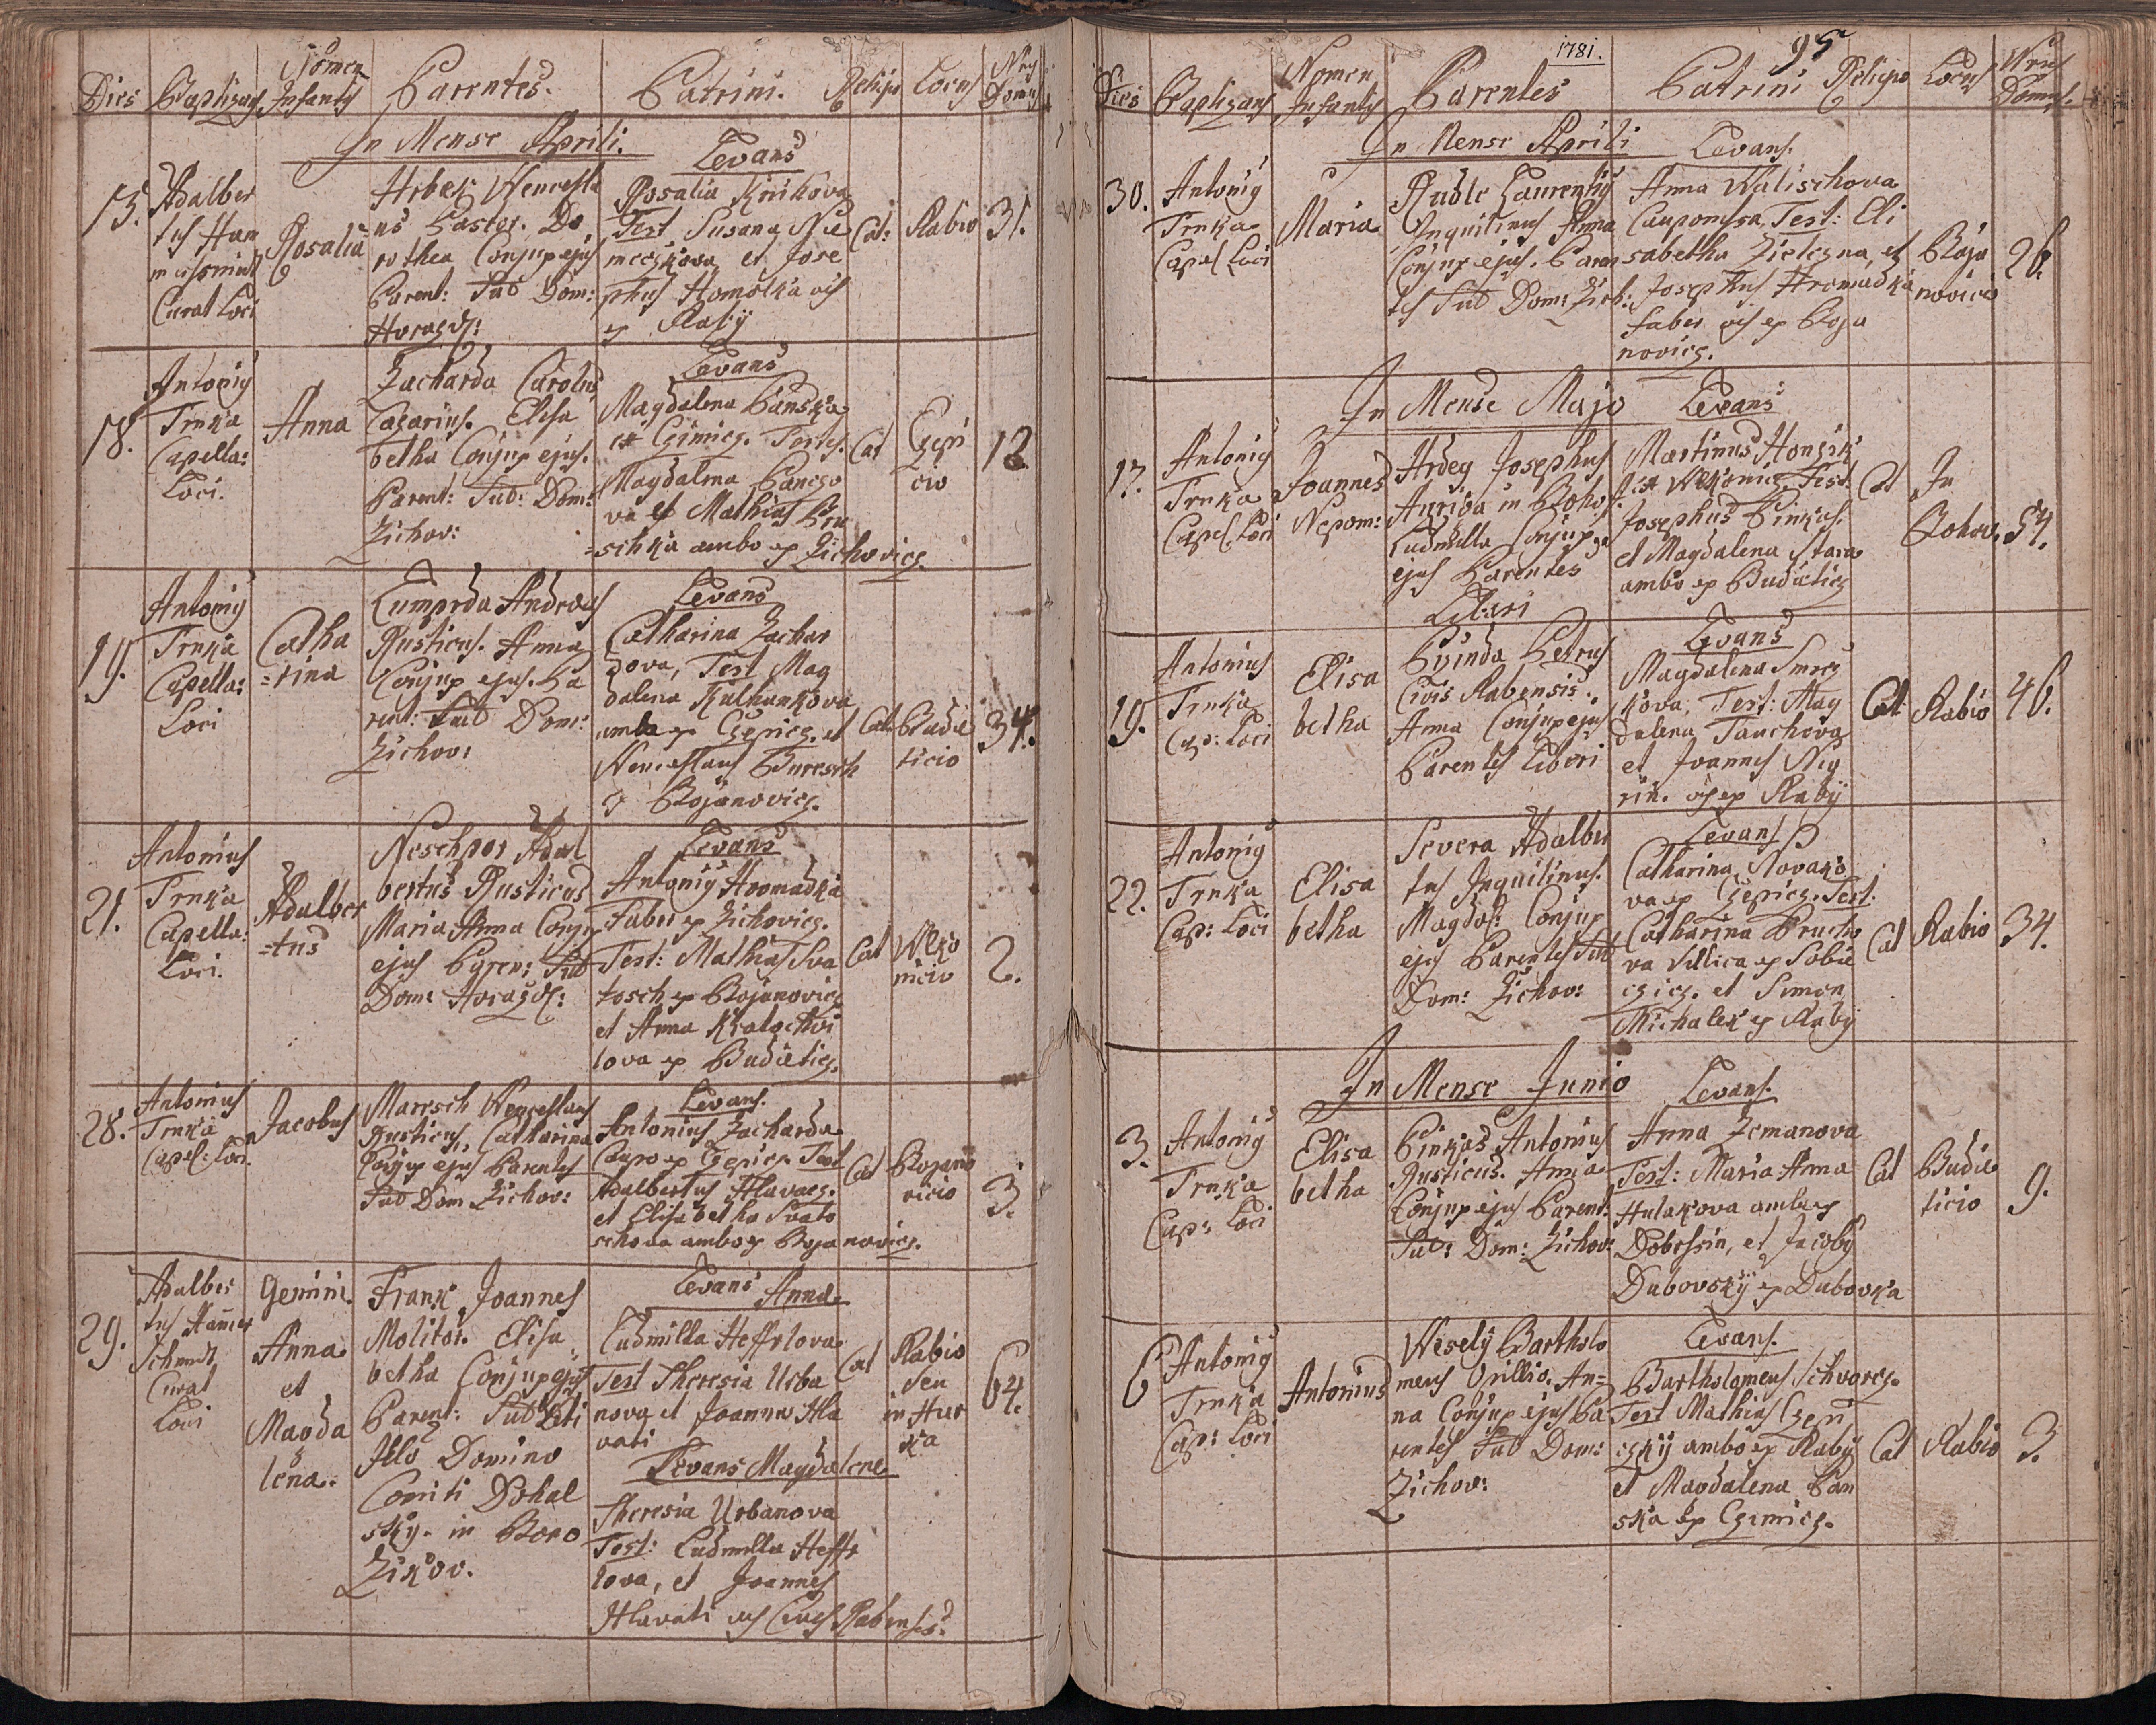 Dies Baptizans Nomen Infantis Parentes. Patrini. Religio Locus Nrus Domus
In Mense Aprili.
Levans
15. Adalber
tus Ham
Curat Loci
Rosalia
Hrbek Wencesla
us Pastor. Do
rothea Conjux ejus
Parent: Sub Dom:
Horazd:
Rosalia Krikova
Test Susana Nie
meczkova et Jose
phus Homolka oes
ex Raby
Cat: Rabio 31.
18. Antonius
Trnka
Capella:
Loci.
Anna
Zacharda Carolus
Casarius. Elisa
betha Conjux ejus.
Parent: Sub: Dom:
Zichov:
Levans
Magdalena Panska
ex Czimicz. Testes.
Magdalena Panczo
va et Mathias Hru
schka ambo ex Zichovicz.
Cat Czepi
cio 12
19. Antonius
Trnka
Capella:
Loci
Catha
=rina
Lumprda Andreas
Rusticus. Anna
Conjux ejus. Pa
rent: Sub Dom:
Zichov:
Levans
Catharina Zachar
dova, Test Mag
dalena Kalhankova
ambae ex Czepicz. et
Wenceslaus Buresch
ex Bojanovicz.
Cat. Budie
ticio 34.
21. Antonius
Trnka
Capella:
Loci.
Adalber
=tus
Neschpor Adal
bertus Rusticus
Maria Anna Conjux
ejus Paren: Sub
Dom: Horazd:
Levans
Antonius Hromadka
Faber ex Zichovicz.
Test: Mathias Sva
tosch ex Bojanovicz
et Anna Kratochvi
lova ex Budieticz.
Cat Wlko
nicio 2.
28. Antonius
Trnka
Capel: Loci.
Jacobus
Maresch Wenceslaus
Rusticus, Catharina
Conjux ejus Parentes
Sub Dom Zichov:
Levans.
Antonius Zacharda
Caupo ex Czepicz. Test
Adalbertus Hlavacz.
et Elisabetha Svato
schova ambo ex Bojanovicz.
Cat Bojano
vicio 3.
29. Adalber
tus Hamer
Schmidt
Curat
Loci
Gemini.
Anna
et
Magda
lena.
Frank Joannes
Molitor. Elisa
betha Conjux ejus
Parent: Sub
Illo Domino
Comiti Dohal
sky. in Boro
Zikov.
Levans Annae
Ludmilla Heffrlova
Test Theresia Urba
nova et Joannes Hla
vati
Levans Magdalenae
Theresia Urbanova
Test: Ludmilla Heffr
lova, et Joannes
Hlavati oes Cives Rabenses.
Cat Rabio
seu
in Hur
ka 64.
1781. 95
Dies Baptizans Nomen Infantis Parentes Patrini Religio Locus Nrus Domus.
In Mense Aprili Levans.
30. Antonius
Trnka
Capel Loci
Maria
Ruble Laurentius
Inquilinus Anna
Conjux ejus. Paren
tes Sub Dom: Zich:
Anna Walischova
Cauponissa, Test: Eli
sabetha Zielezna, et
Josephus Hromadka
faber oes ex Boja
novicz.
Boja
novicio 26.
In Mense Majo Levans
17. Antonius
Trnka
Capel. Loci
Joannes
Nepom:
Hrdey Josephus
Auriga in Bohos
Ludmilla Conjux
ejus Parentes
Liberi
Martinus Honzik
ex Wlkonicz Test
Josephus Pinkas.
et Magdalena Stara
ambo ex Budieticz
Cat In
Bohov. 54.
19. Antonius
Trnka
Cap: Loci
Elisa
betha
Bvinda Petrus
Civis Rabensis.
Anna Conjux ejus
Parentes Liberi
Levans
Magdalena Smrcz
kova, Test: Mag
dalena Tauchova
et Joannes Neg
rin. oes ex Raby
Cat Rabio 46.
22. Antonius
Trnka
Cap: Loci
Elisa
betha
Severa Adalber
tus Inquilinus.
Magdal: Conjux
ejus Parentes Sub
Dom: Zichov:
Levans
Catharina Novako
va ex Czepicz. Test:
Catharina Prucho
va Villica ex Sobie
czicz. et Simon
Michalek ex Raby
Cat Rabio 34.
In Mense Junio Levans.
3. Antonius
Trnka
Cap: Loci
Elisa
betha
Pinkas Antonius
Rusticus. Anna
Conjux ejus Parent:
Sub: Dom: Zichov:
Anna Zemanova
Test: Maria Anna
Hulakova ambae ex
Dobrssin, et Jacobus
Dubovsky ex Dubovka
Cat Budie
ticio 9.
6 Antonius
Trnka
Cap: Loci
Antonius
Wesely Bartholo
meus Opillio. An=
na Conjux ejus Pa
rentes Sub Dom:
Zichov:
Levans.
Bartholomeus Schvarcz.
Test Mathias Czepi
czky ambo ex Raby
et Magdalena Pan
ska ex Czimicz.
Cat Rabio 3.